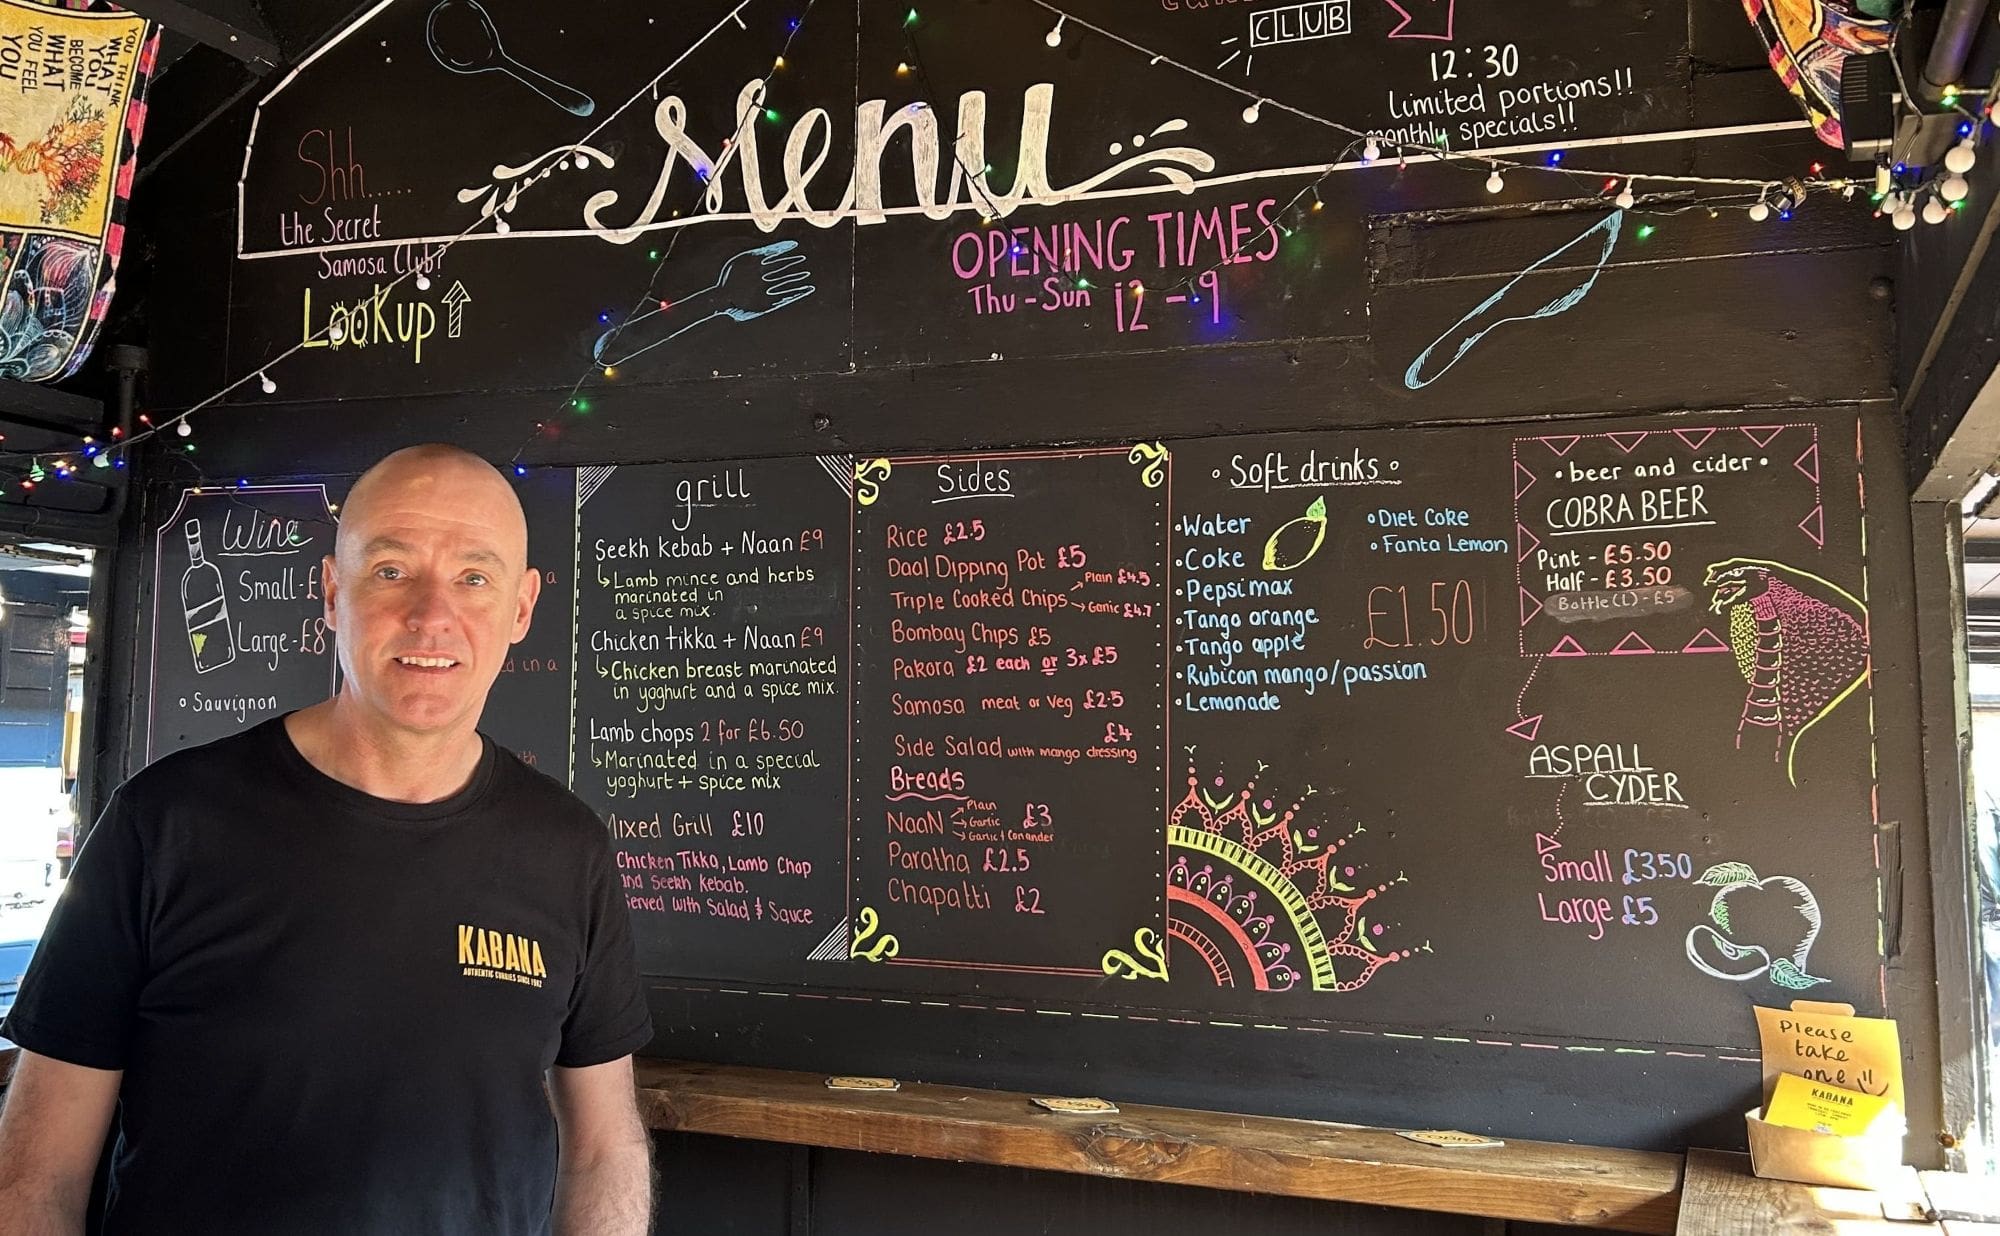 YOU THINK
WHAT
YOU
BECOME
WHAT
YOU FEEL
YOU
CLUB
12:30
Limited portions!!
monthly specials!!
Menu
Shh.....
the Secret
Samosa Club?
Look up
OPENING TIMES
Thu - Sun 12 - 9
Wine
Small - £
Large - £8
Sauvignon
a
in a
grill
Seekh Kebab + Naan £9
Lamb mince and herbs
marinated in
a spice mix.
Chicken tikka + Naan £9
Chicken breast marinated
in yoghurt and a spice mix.
Lamb chops 2 for £6.50
Marinated in a special
yoghurt + spice mix
Mixed Grill £10
Chicken Tikka, Lamb Chop
and Seekh Kebab.
Served with Salad & Sauce
Sides
Rice £2.5
Daal Dipping Pot £5
Triple Cooked Chips
Plain £4.5
Garlic £4.7
Bombay Chips £5
Pakora £2 each or 3x£5
Samosa meat or Veg £2.5
Side Salad with mango dressing £4
Breads
Naan £3
Plain
Garlic
Garlic + Coriander
Paratha £2.5
Chapatti £2
Soft drinks
Water
Coke
Pepsi max
Tango orange
Tango apple
Rubicon mango/passion
Lemonade
Diet Coke
Fanta Lemon
£1.50
beer and cider
COBRA BEER
Pint - £5.50
Half - £3.50
Bottle (L) - £5
ASPALL
CYDER
Small £3.50
Large £5
KABANA
AUTHENTIC CURRIES SINCE 1982
Please
take
one
KABANA
COBRA